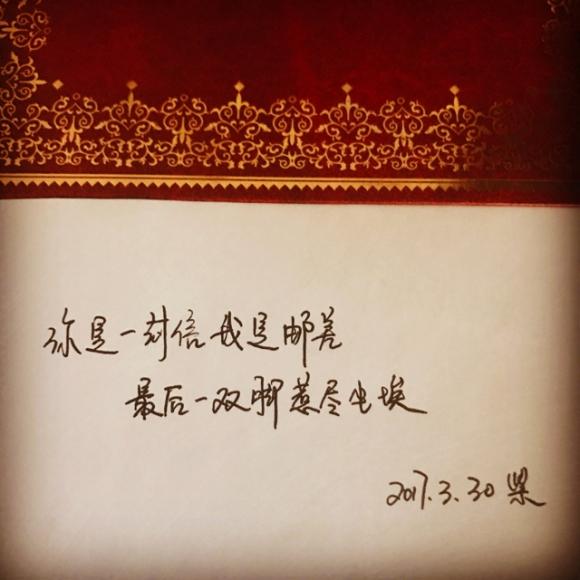 你是一封信我是邮差
最后一双脚惹尽尘埃
2017.3.30